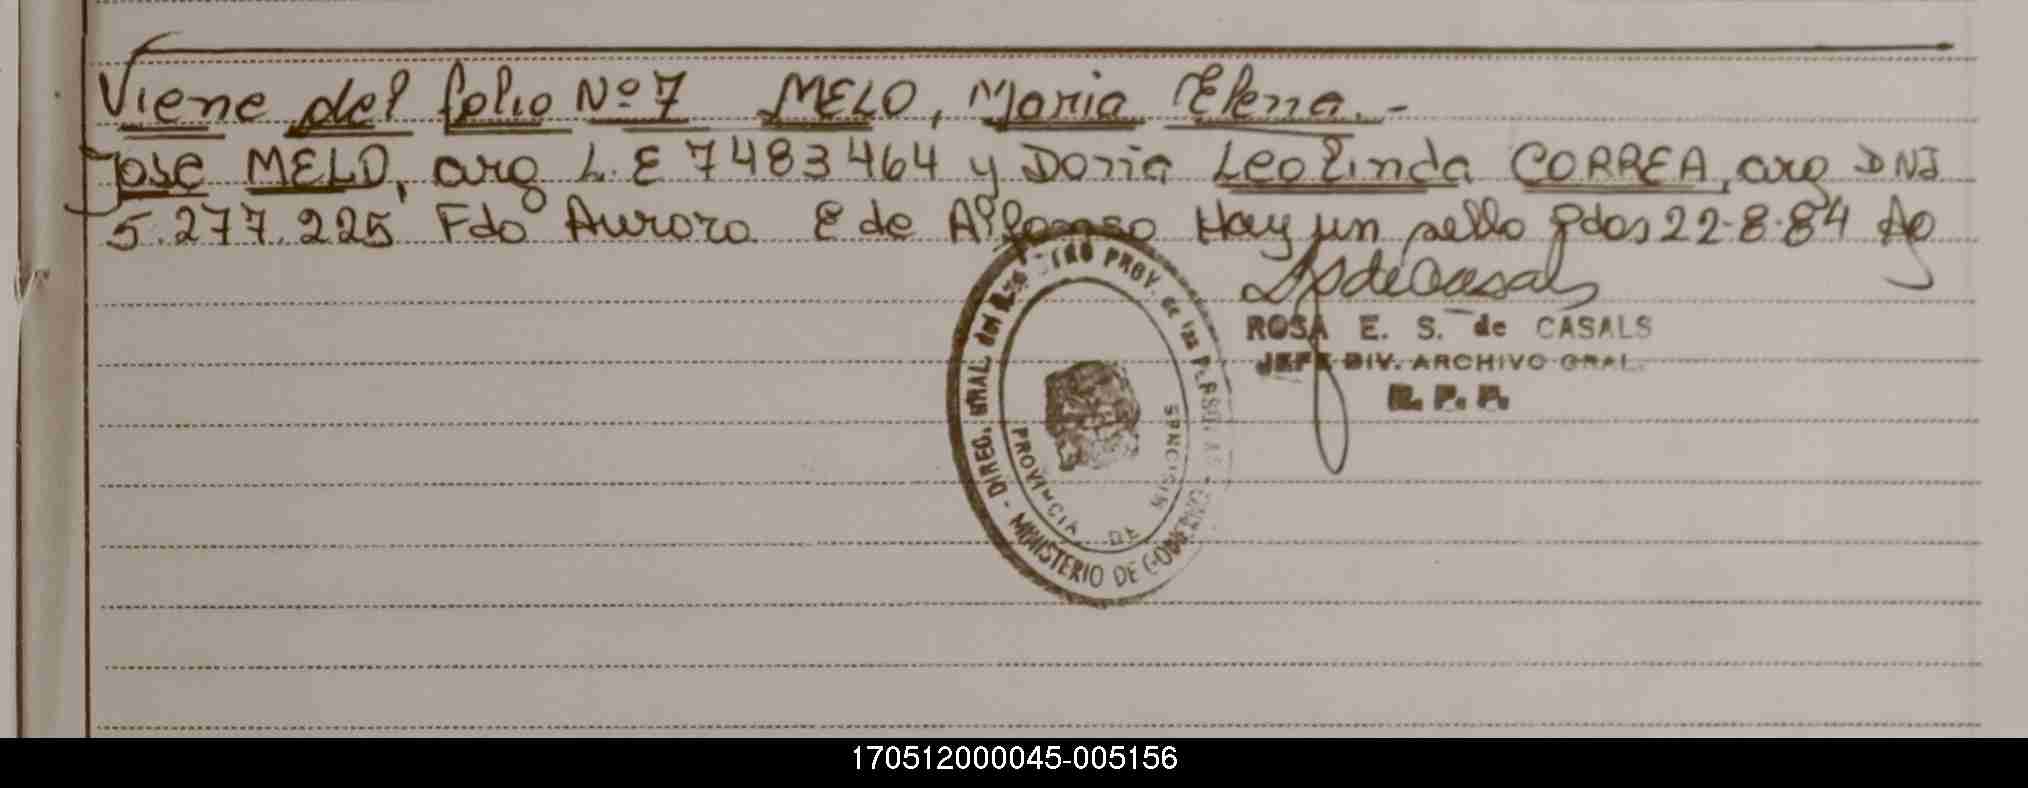 Viene del folio Nº 7 MELO, Maria Elena.-
Jose MELO, arg L.E 7483464 y Doria Leolinda CORREA, arg DNI
5.277.225 Fdo Aurora E de Alfonso Hay un sello Pdos 22-8-84
ROSA E. S. de CASALS
JEFE DIV. ARCHIVO GRAL.
R. P. P.
DIREC. GRAL. del REGISTRO PROV. de las PERSONAS - MINISTERIO DE GOBIERNO
PROVINCIA DE MISIONES
170512000045-005156